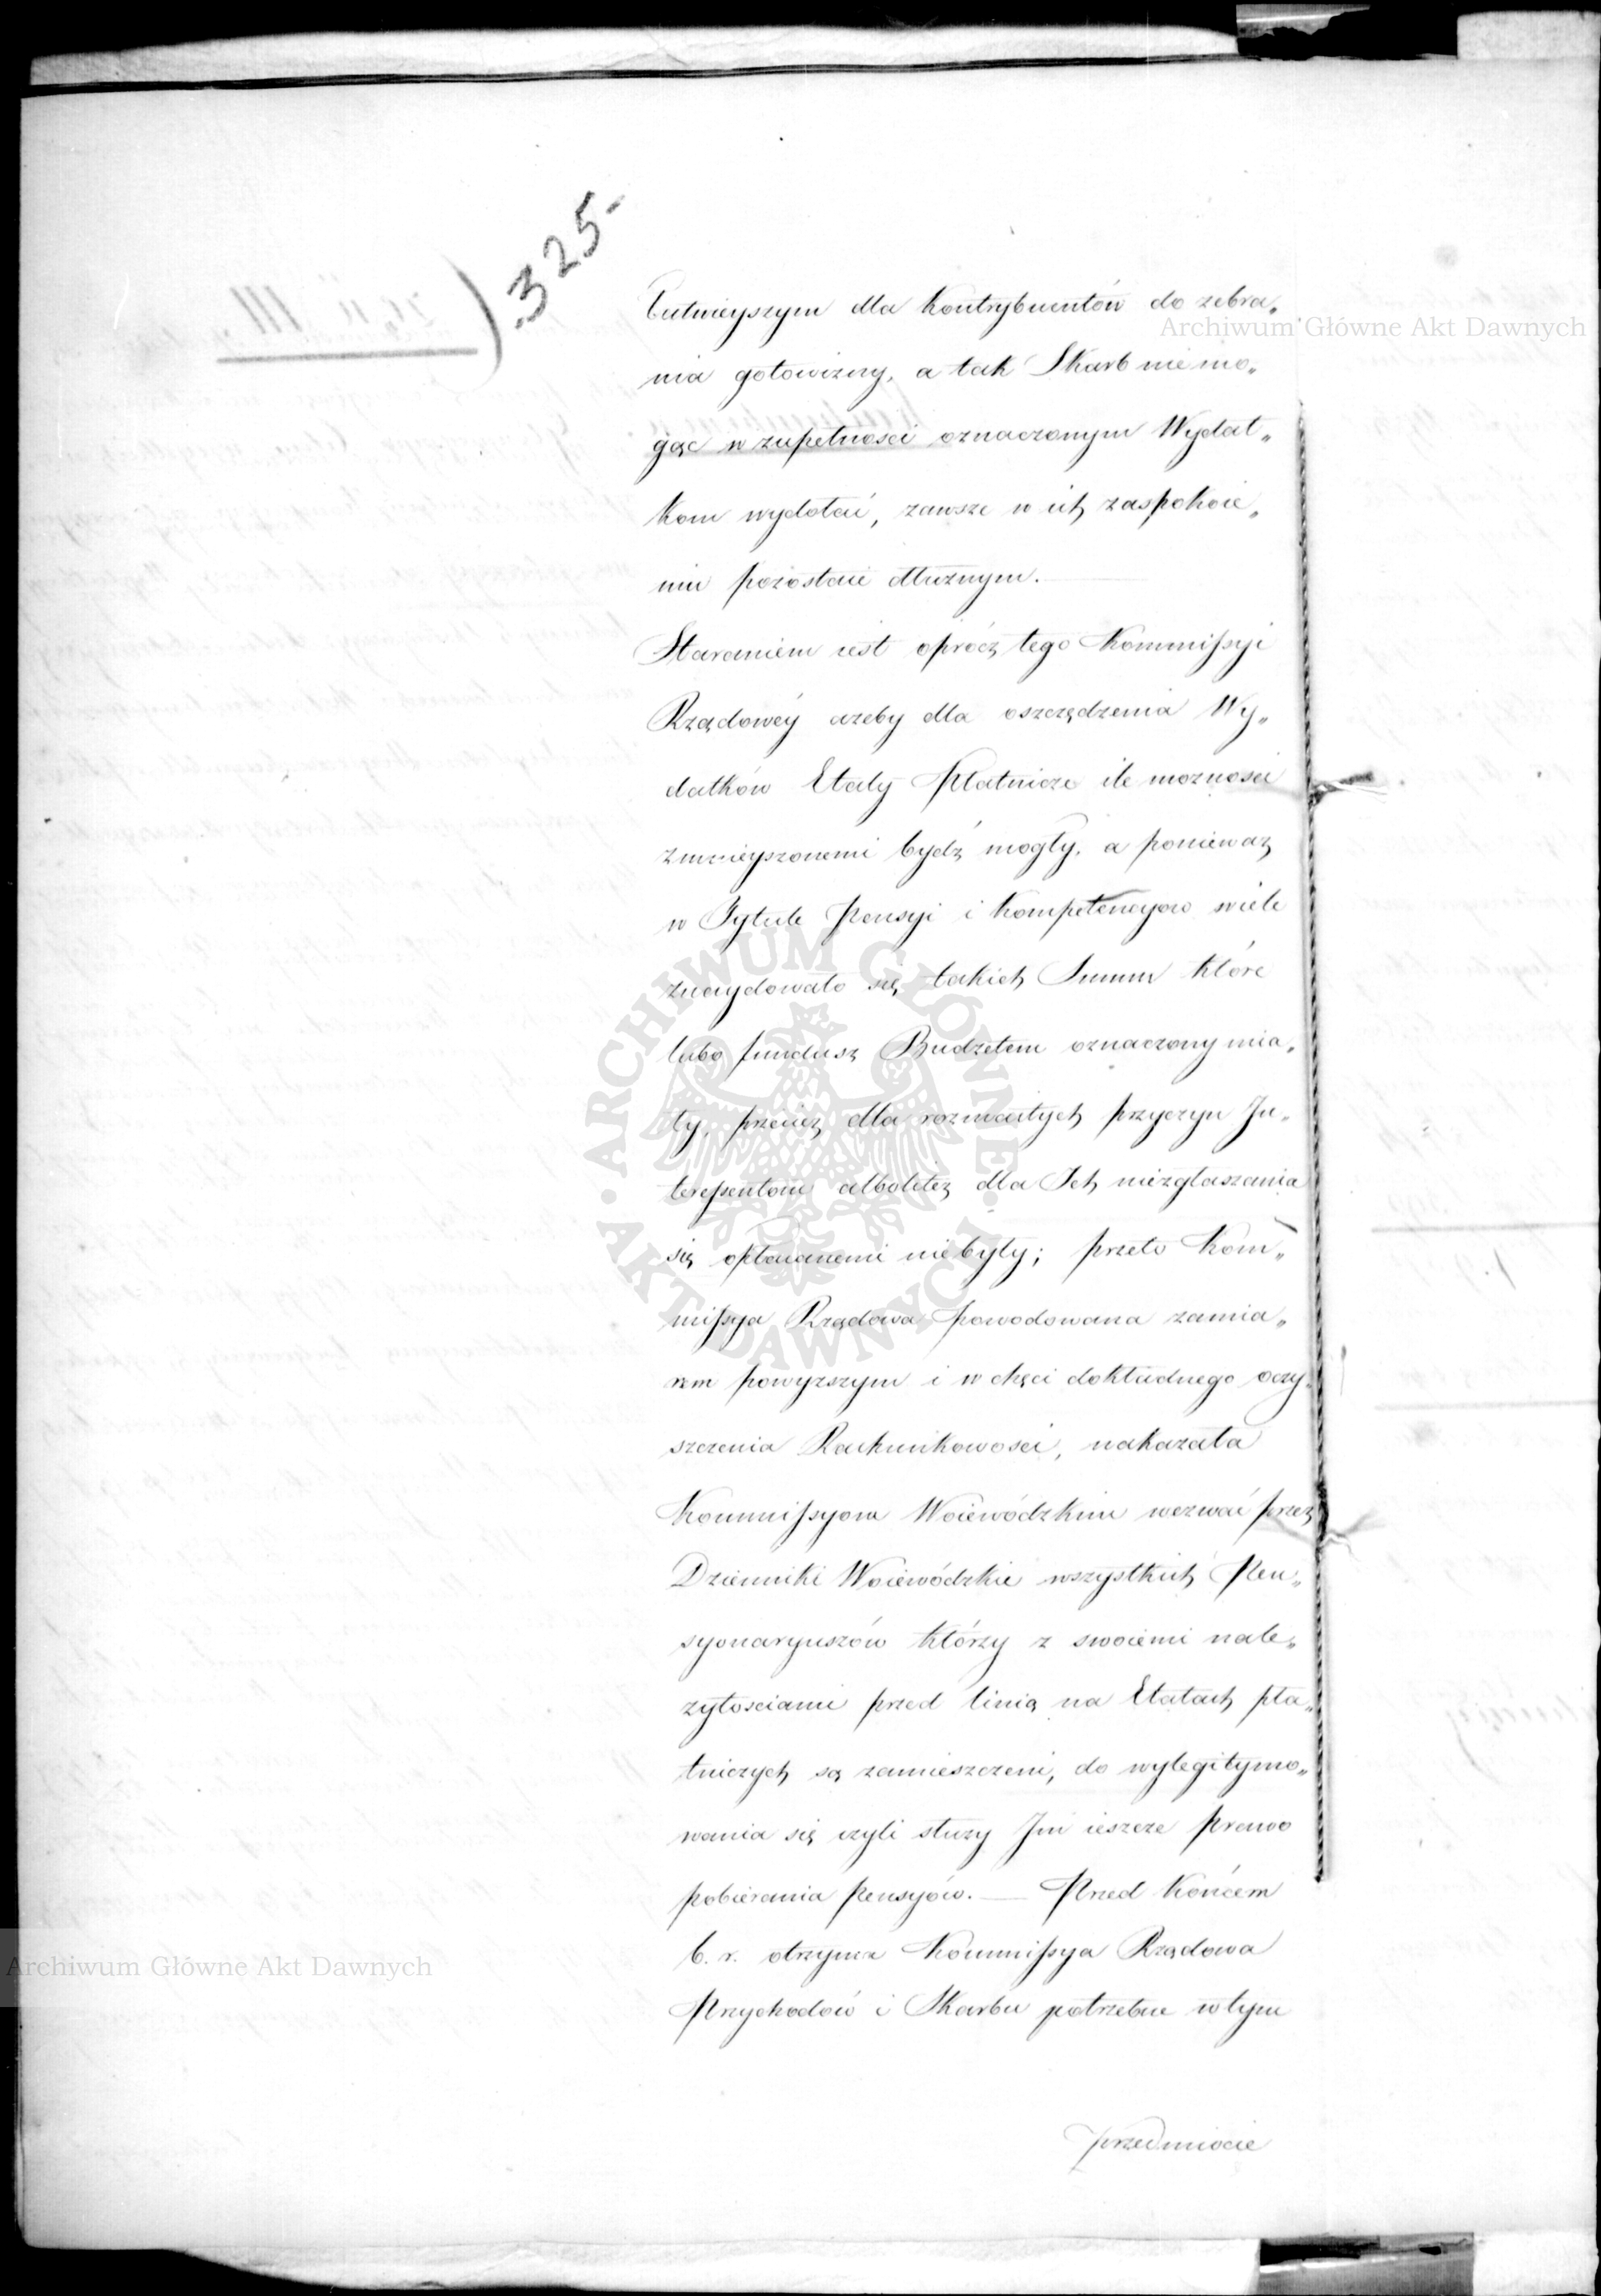 325-
łatwieyszym dla Kontrybuentów do zebra„
nia gotowizny, a tak Skarb nie mo„
gąc w zupełnosci oznaczonym Wydat„
kom wydołać, zawsze w ich zaspokoie„
niu pozostaie dłużnym.—
Staraniem iest oprócz tego Kommissyi
Rządowéy azeby dla oszczędzenia Wy„
datków Etaty Płatnicze ile mozności
zmnieyszonemi bydź mogły, a ponieważ
w Tytule Pensyi i Kompetencyow wiele
znaydowało się takich Summ które
lubo fundusz Budżetem oznaczony mia„
ły, przecież dla rozmaitych przyczyn In„
teressentom albolitéz dla Ich niezgłaszania
się opłaconemi niebyły; przeto Kom„
missya Rządowa powodowana zamia„
rem powyższym i w chęci dokładnego oczy„
szczenia Rachunkowosci, nakazała
Kommissyom Woiewódzkim wezwać przez
Dzienniki Woiewódzkie wszystkich Pen„
syonaryuszów którzy z swoiemi nale„
zytosciami przed linią na Etatach pła„
tniczych są zamieszczeni, do wylegitymo„
wania się czyli służy Im ieszcze prawo
pobierania Pensyów.— Przed Końcem
b. r. otrzyma Kommissya Rządowa
Przychodów i Skarbu potrzebne w tym
przedmiocie
Archiwum Główne Akt Dawnych
ARCHIWUM GŁÓWNE AKT DAWNYCH
Archiwum Główne Akt Dawnych